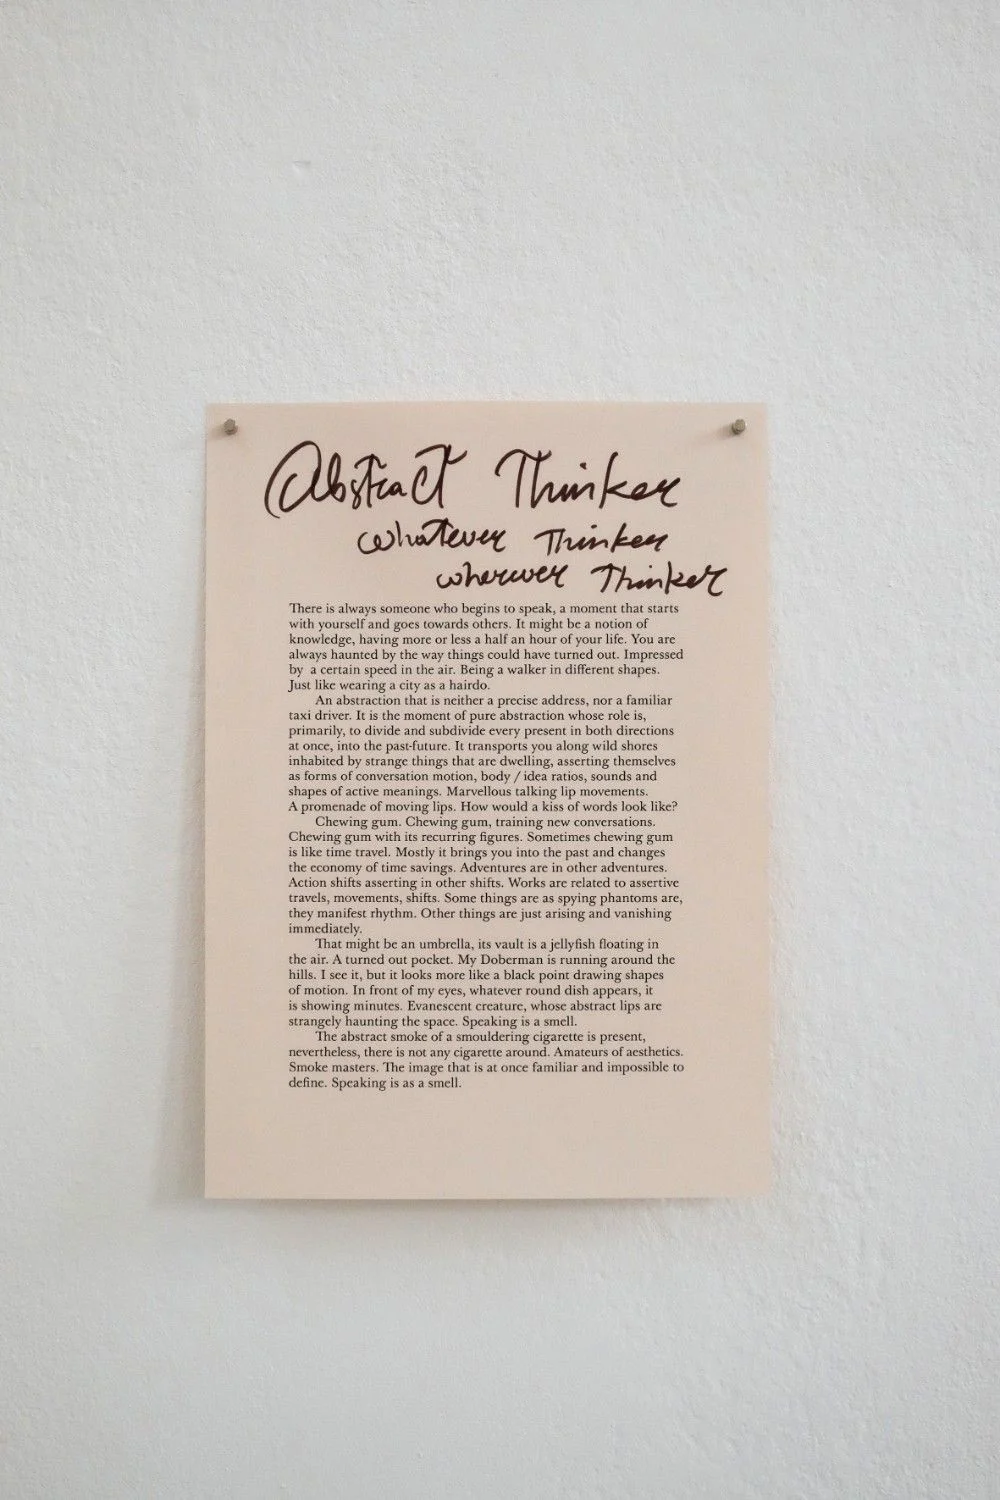 Abstract Thinker
whatever Thinker
wherever Thinker
There is always someone who begins to speak, a moment that starts
with yourself and goes towards others. It might be a notion of
knowledge, having more or less a half an hour of your life. You are
always haunted by the way things could have turned out. Impressed
by a certain speed in the air. Being a walker in different shapes.
Just like wearing a city as a hairdo.
An abstraction that is neither a precise address, nor a familiar
taxi driver. It is the moment of pure abstraction whose role is,
primarily, to divide and subdivide every present in both directions
at once, into the past-future. It transports you along wild shores
inhabited by strange things that are dwelling, asserting themselves
as forms of conversation motion, body / idea ratios, sounds and
shapes of active meanings. Marvellous talking lip movements.
A promenade of moving lips. How would a kiss of words look like?
Chewing gum. Chewing gum, training new conversations.
Chewing gum with its recurring figures. Sometimes chewing gum
is like time travel. Mostly it brings you into the past and changes
the economy of time savings. Adventures are in other adventures.
Action shifts asserting in other shifts. Works are related to assertive
travels, movements, shifts. Some things are as spying phantoms are,
they manifest rhythm. Other things are just arising and vanishing
immediately.
That might be an umbrella, its vault is a jellyfish floating in
the air. A turned out pocket. My Doberman is running around the
hills. I see it, but it looks more like a black point drawing shapes
of motion. In front of my eyes, whatever round dish appears, it
is showing minutes. Evanescent creature, whose abstract lips are
strangely haunting the space. Speaking is a smell.
The abstract smoke of a smouldering cigarette is present,
nevertheless, there is not any cigarette around. Amateurs of aesthetics.
Smoke masters. The image that is at once familiar and impossible to
define. Speaking is as a smell.